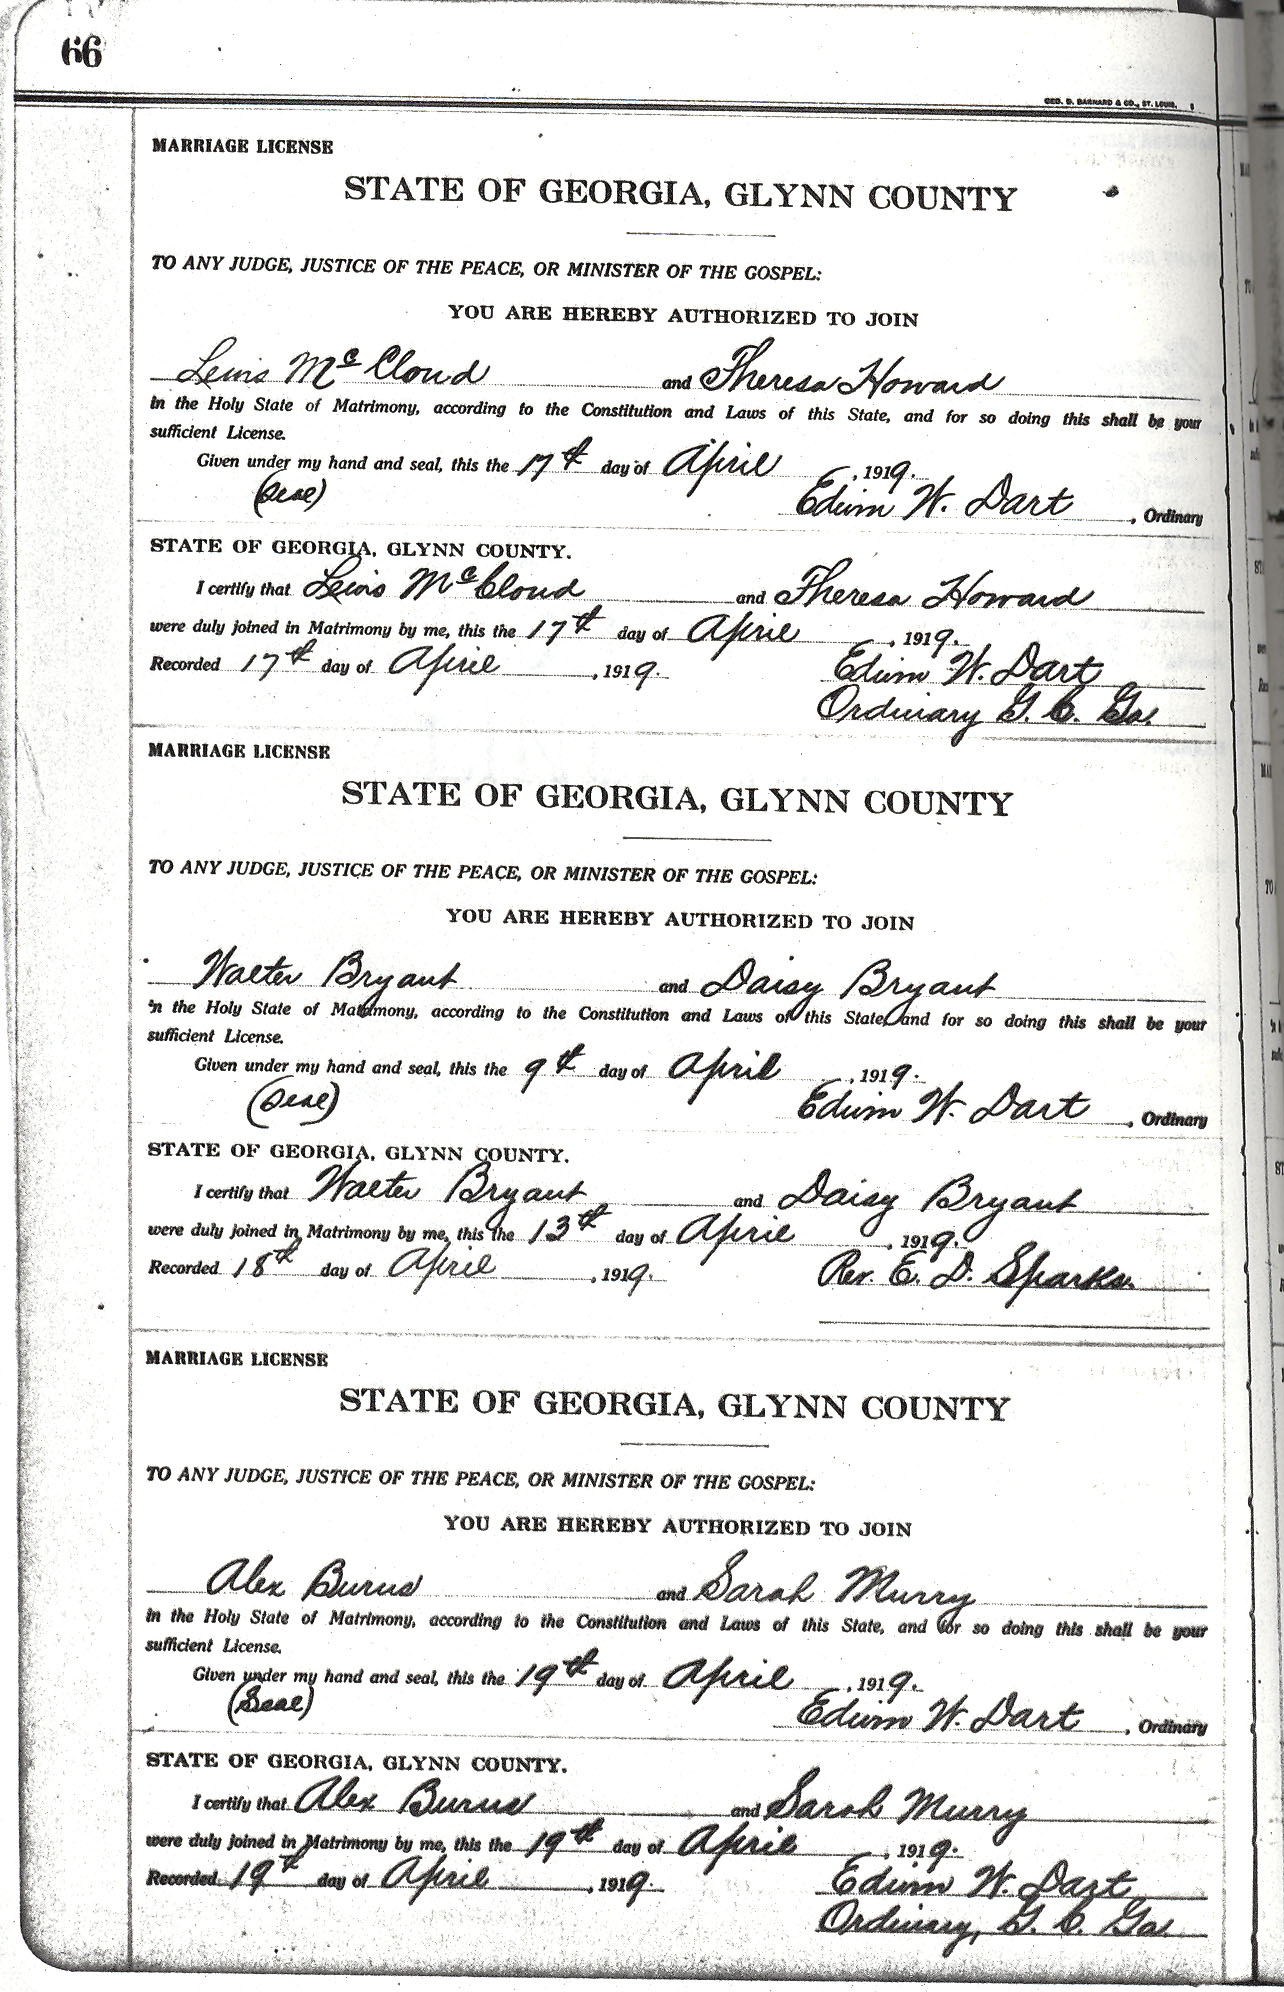 66
GEO. D. BARNARD & CO., ST. LOUIS.
MARRIAGE LICENSE
STATE OF GEORGIA, GLYNN COUNTY
TO ANY JUDGE, JUSTICE OF THE PEACE, OR MINISTER OF THE GOSPEL:
YOU ARE HEREBY AUTHORIZED TO JOIN
Lewis McCloud and Theresa Howard
in the Holy State of Matrimony, according to the Constitution and Laws of this State, and for so doing this shall be your
sufficient License.
Given under my hand and seal, this the 17th day of April, 1919.
(Seal) Edwin W. Dart, Ordinary
STATE OF GEORGIA, GLYNN COUNTY.
I certify that Lewis McCloud and Theresa Howard
were duly joined in Matrimony by me, this the 17th day of April, 1919.
Recorded 17th day of April, 1919. Edwin W. Dart
Ordinary G. C. Ga.
MARRIAGE LICENSE
STATE OF GEORGIA, GLYNN COUNTY
TO ANY JUDGE, JUSTICE OF THE PEACE, OR MINISTER OF THE GOSPEL:
YOU ARE HEREBY AUTHORIZED TO JOIN
Walter Bryant and Daisy Bryant
in the Holy State of Matrimony, according to the Constitution and Laws of this State, and for so doing this shall be your
sufficient License.
Given under my hand and seal, this the 9th day of April, 1919.
(Seal) Edwin W. Dart, Ordinary
STATE OF GEORGIA, GLYNN COUNTY.
I certify that Walter Bryant and Daisy Bryant
were duly joined in Matrimony by me, this the 13th day of April, 1919.
Recorded 18th day of April, 1919. Rev. E. D. Sparks.
MARRIAGE LICENSE
STATE OF GEORGIA, GLYNN COUNTY
TO ANY JUDGE, JUSTICE OF THE PEACE, OR MINISTER OF THE GOSPEL:
YOU ARE HEREBY AUTHORIZED TO JOIN
Alex Burns and Sarah Murry
in the Holy State of Matrimony, according to the Constitution and Laws of this State, and for so doing this shall be your
sufficient License.
Given under my hand and seal, this the 19th day of April, 1919.
(Seal) Edwin W. Dart, Ordinary
STATE OF GEORGIA, GLYNN COUNTY.
I certify that Alex Burns and Sarah Murry
were duly joined in Matrimony by me, this the 19th day of April, 1919.
Recorded 19th day of April, 1919. Edwin W. Dart
Ordinary, G. C. Ga.